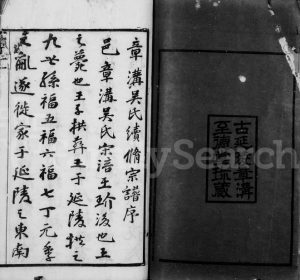 章溝吳氏續脩宗譜序
邑章溝吳氏宗涪王玠後也王
之薨也王子拱葬王于延陵拱之
九世孫福五福六福七丁元季
之亂遂徙家于延陵之東南
FamilySearch